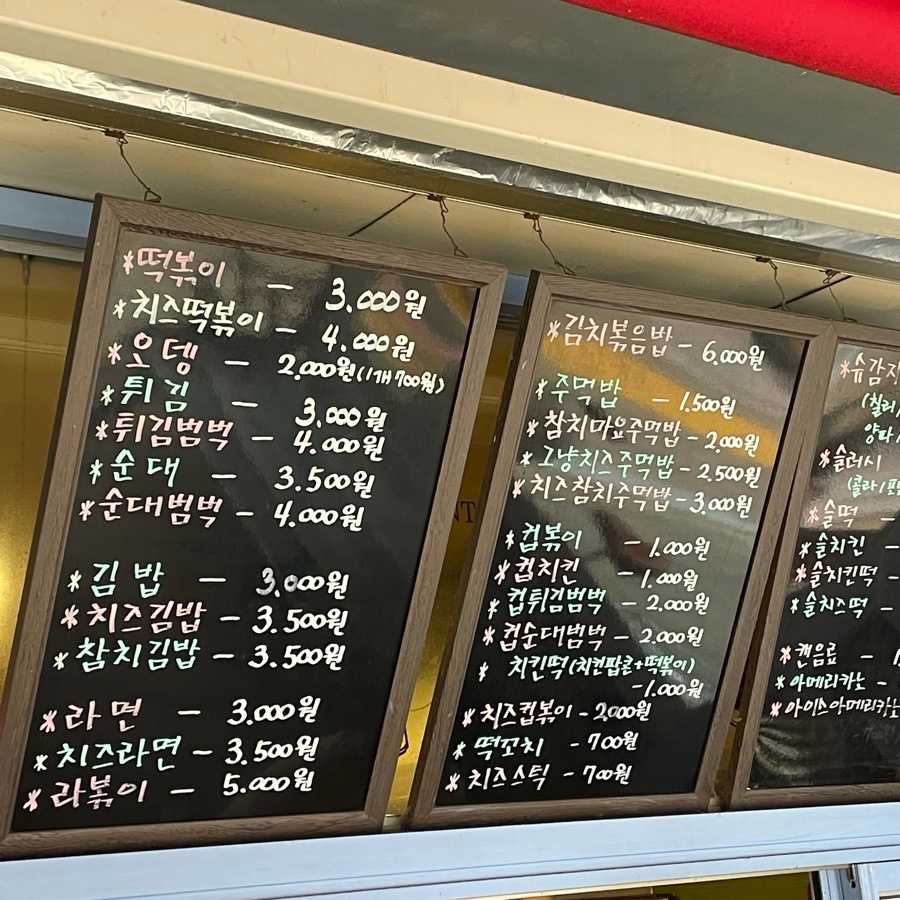 *떡볶이 - 3.000원
*치즈떡볶이 - 4.000원
*오뎅 - 2.000원(1개 700원)
*튀김 - 3.000원
*튀김범벅 - 4.000원
*순대 - 3.500원
*순대범벅 - 4.000원
*김밥 - 3.000원
*치즈김밥 - 3.500원
*참치김밥 - 3.500원
*라면 - 3.000원
*치즈라면 - 3.500원
*라볶이 - 5.000원
*김치볶음밥 - 6.000원
*주먹밥 - 1.500원
*참치마요주먹밥 - 2.000원
*그냥치즈주먹밥 - 2.500원
*치즈참치주먹밥 - 3.000원
*컵볶이 - 1.000원
*컵치킨 - 1.000원
*컵튀김범벅 - 2.000원
*컵순대범벅 - 2.000원
* 치킨떡(치킨팝콘+떡볶이)
-1.000원
*치즈컵볶이 - 2.000원
*떡꼬치 - 700원
*치즈스틱 - 700원
*슈감자
(칠리/
양파/
*슬러시
(콜라/포도
*슬떡 -
*슬치킨 -
*슬치킨떡 -
*슬치즈떡 -
*캔음료 -
*아메리카노 -
*아이스아메리카노